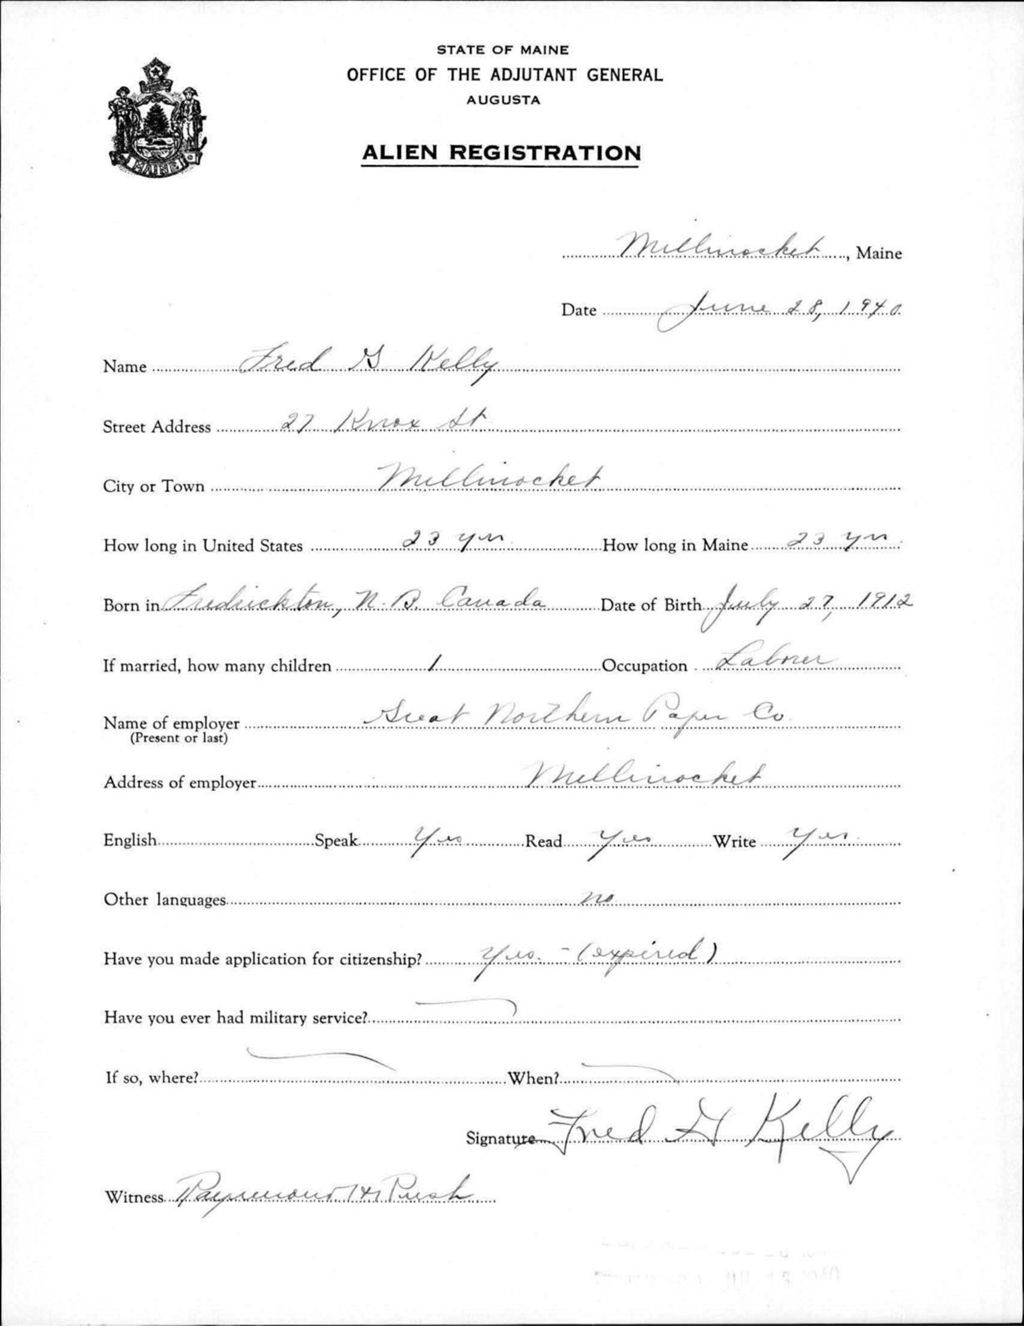 STATE OF MAINE
OFFICE OF THE ADJUTANT GENERAL
AUGUSTA
ALIEN REGISTRATION
MAINE
Millinocket, Maine
Date June 28, 1940
Name Fred G Kelly
Street Address 27 Knox St
City or Town Millinocket
How long in United States 23 yrs How long in Maine 23 yrs
Born in Fredrickton, N.B. Canada Date of Birth July 27, 1912
If married, how many children 1 Occupation Laborer
Name of employer Great Northern Paper Co.
(Present or last)
Address of employer Millinocket
English Speak Yes Read Yes Write Yes
Other languages no
Have you made application for citizenship? Yes. - (expired)
Have you ever had military service?
If so, where? When?
Signature Fred G Kelly
Witness Raymond H